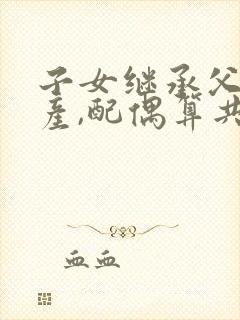 子女继承父
产,配偶算共
血血